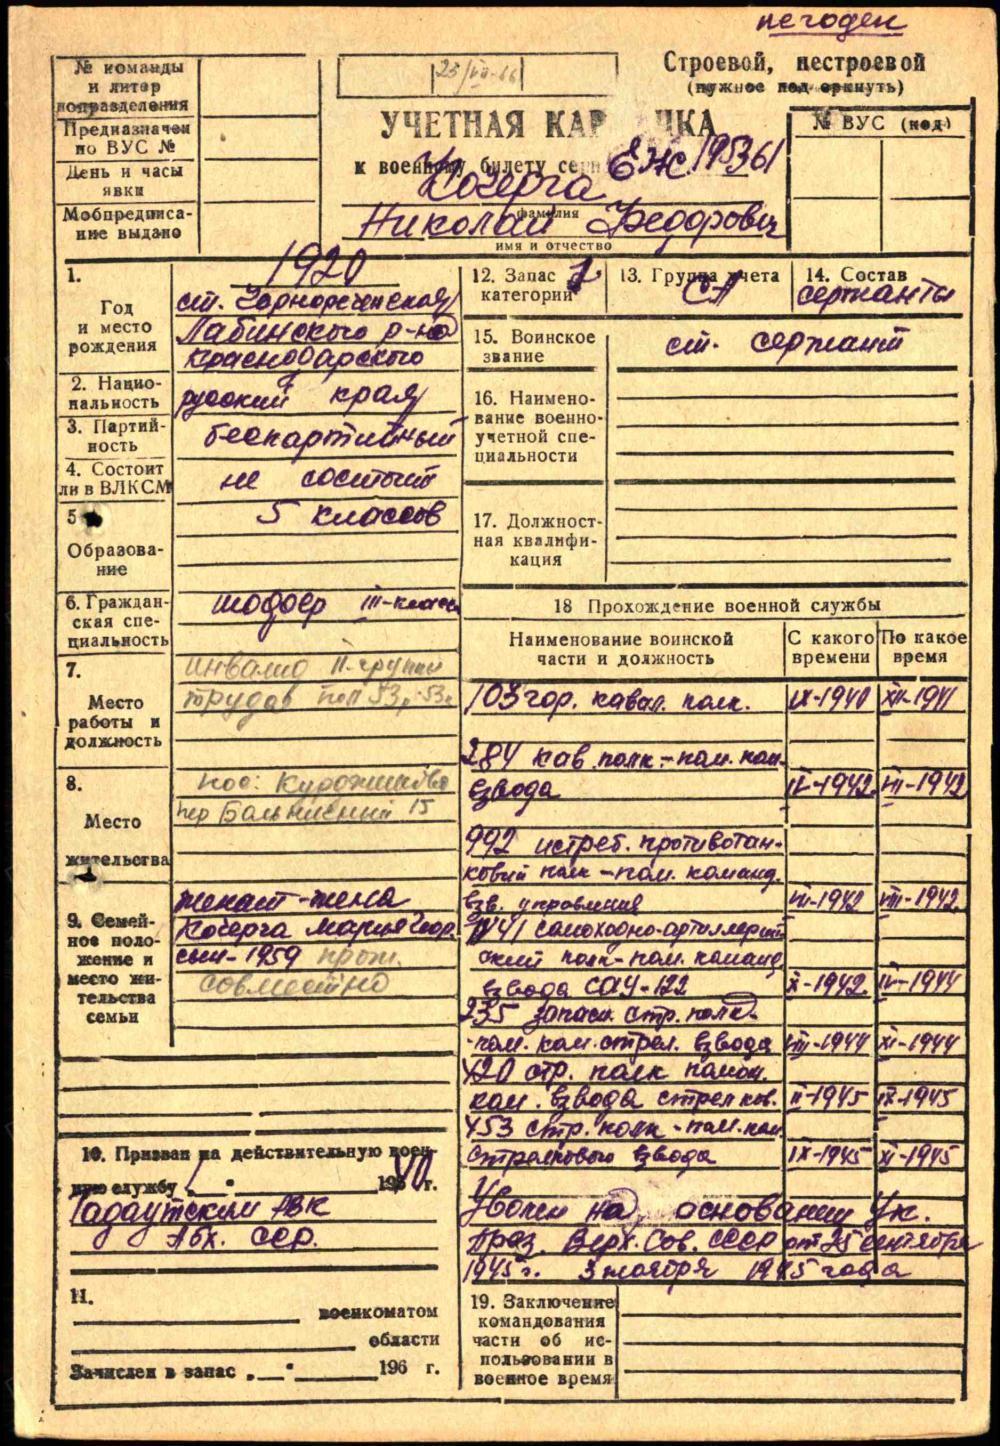 негоден
23/VII-66
Строевой, нестроевой
(нужное подчеркнуть)
№ команды
и литер
подразделения
Предназначен
по ВУС №
День и часы
явки
Мобпредписа-
ние выдано
УЧЕТНАЯ КАР ЧКА
к военному билету сери ЕЖ 195361
Кочерга
фамилия
Николай Федорович
имя и отчество
№ ВУС (код)
1.
Год
и место
рождения
1920
ст. Чернореченская
Лабинского р-на
Краснодарского
края
2. Нацио-
нальность
русский
3. Партий-
ность
беспартийный
4. Состоит
ли в ВЛКСМ
не состоит
5
Образова-
ние
5 классов
6. Граждан-
ская спе-
циальность
шофер III-класса
7.
Место
работы и
должность
инвалид II-группы
8.
Место
жительства
пос.
пер Больничный 15
9. Семей-
ное поло-
жение и
место жи-
тельства
семьи
женат-жена
Кочерга Мария Геор.
сын-1959 прож.
совместно
10. Призван на действительную воен-
ную службу 1940 г.
Гадаутский РВК
Абх. ССР.
11.
военкоматом
области
Зачислен в запас „ “ 196 г.
12. Запас
категории 1
13. Группа учета
СА
14. Состав
сержанты
15. Воинское
звание
ст. сержант
16. Наимено-
вание военно-
учетной спе-
циальности
17. Должност-
ная квалифи-
кация
18 Прохождение военной службы
Наименование воинской
части и должность
С какого
времени
По какое
время
103 гор. кавал. полк. IX-1940 XII-1941
284 кав. полк-пом. ком.
взвода IV-1942 VII-1942
992 истреб. противотан-
ковый полк-пом. команд.
взв. управления VII-1942 VIII-1942
1441 самоходно-артиллерий
ский полк-пом. команд
взвода САУ-122 X-1942. IV-1944
235 запасн. стр. полк.
-пом. ком. стрел. взвода VIII-1944 XI-1944
420 стр. полк помощ.
ком. взвода стрелков. II-1945 IX-1945
453 стр. полк-пом. ком.
стрелкового взвода IX-1945 XI-1945
Уволен на основании Ук.
През. Верх. Сов. СССР от 25 сентября
1945 г. 3 ноября 1945 года
19. Заключение
командования
части об ис-
пользовании в
военное время